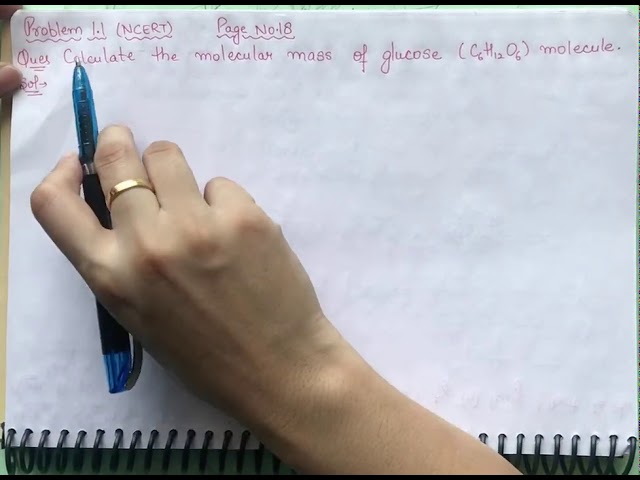 Problem 1.1 (NCERT) Page No.18
Ques Calculate the molecular mass of glucose (C₆H₁₂O₆) molecule.
Sol→